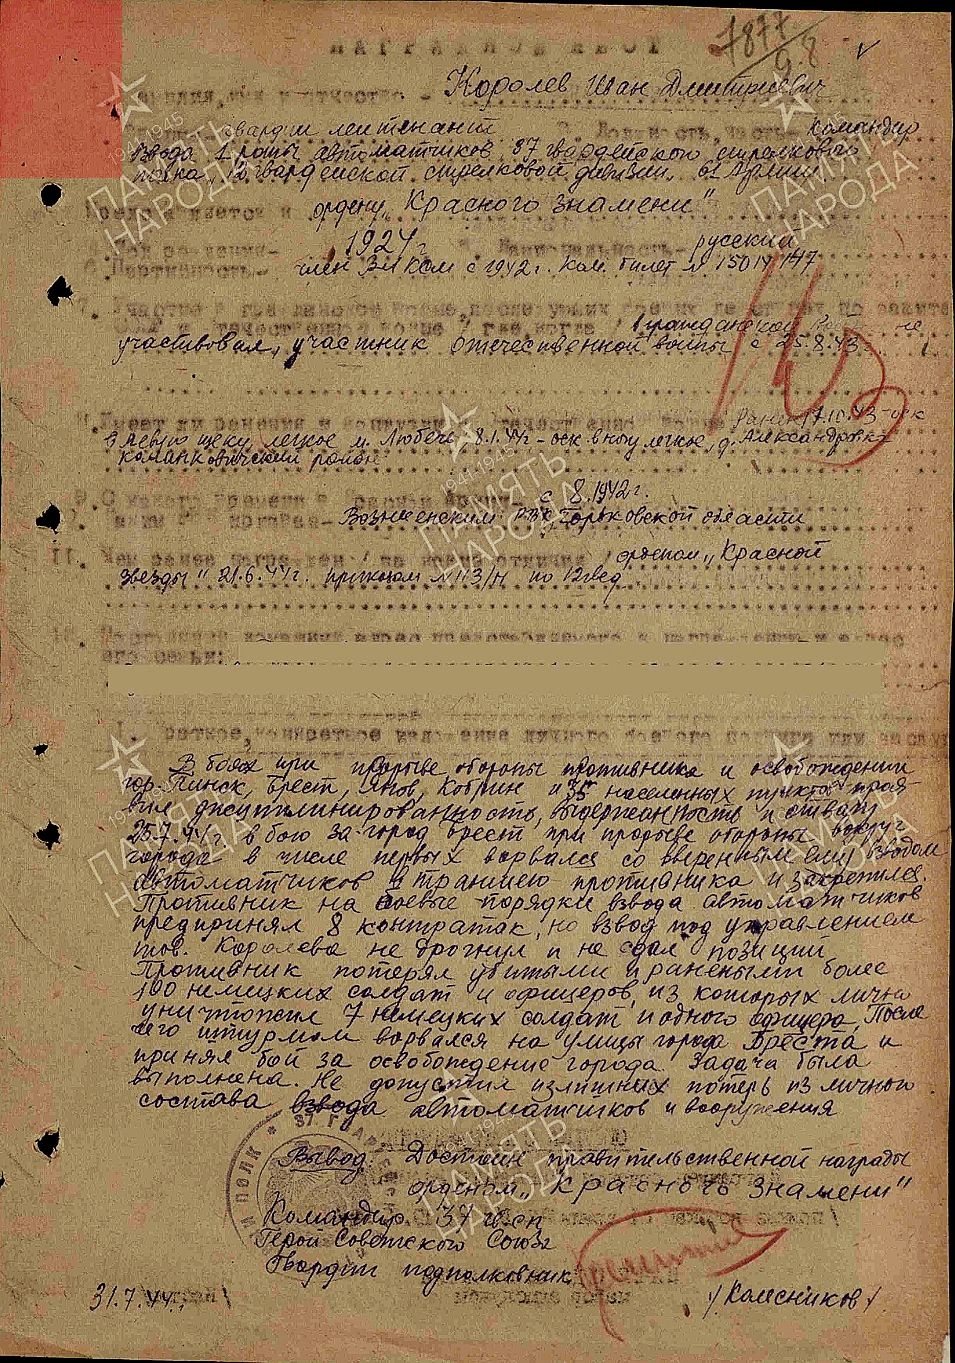 НАГРАДНОЙ ЛИСТ
7877
9.8
Королев Иван Дмитриевич
гвардии лейтенант 3. Должность, часть - командир
взвода 1 роты автоматчиков 37 гвардейского стрелкового
полка, 12 гвардейской стрелковой дивизии, 61 Армии
ордену "Красного знамени"
1924 г. Национальность - русский
6. Партийность - член ВЛКСМ с 1942 г. Ком. билет № 15014747
7. Участие в гражданской войне, последующих боевых действиях по защите
СССР и отечественной войне / где, когда / в гражданской войне не
участвовал, участник отечественной войны с 25.8.43
8. Имеет ли ранения и контузии в отечественной войне ранен 17.10.43 - оск
в левую щеку, легкое м. Любеч, 8.1.44г - оск. в ногу легкое, д. Александровка
Каланковичский район
9. С какого времени в Красной Армии с 8.1942 г.
Вознесенским РВК, Горьковской области
11. Чем ранее награжден / за какие отличия / орденом "Красной
Звезды" 21.6.44г. приказом № 113/н по 12 гвсд
12. Постоянный домашний адрес представляемого к награждению и адрес
его семьи:
1. Краткое, конкретное изложение личного боевого подвига или заслуг
В боях при прорыве обороны противника и освобождении
гор. Пинск, Брест, Янов, Кобрин и 35 населенных пунктов проя
вил дисциплинированность, выдержанность и отвагу
25.7.44г в бою за город Брест при прорыве обороны вокруг
города в числе первых ворвался со вверенным ему взводом
автоматчиков в траншею противника и закрепился.
Противник на боевые порядки взвода автоматчиков
предпринял 8 контратак, но взвод под управлением
тов. Королева не дрогнул и не сдал позиций
Противник потерял убитыми и ранеными более
100 немецких солдат и офицеров, из которых лично
уничтожил 7 немецких солдат и одного офицера. После
чего штурмом ворвался на улицы города Бреста и
принял бой за освобождение города. Задача была
выполнена. Не допустил излишних потерь из личного
состава взвода автоматчиков и вооружения
Вывод: Достоин правительственной награды
орденом "Красного Знамени"
Командир 37 гвсп
Герой Советского Союза
Гвардии подполковник
31.7.44г. /Колесников/
ПАМЯТЬ НАРОДА
1941-1945